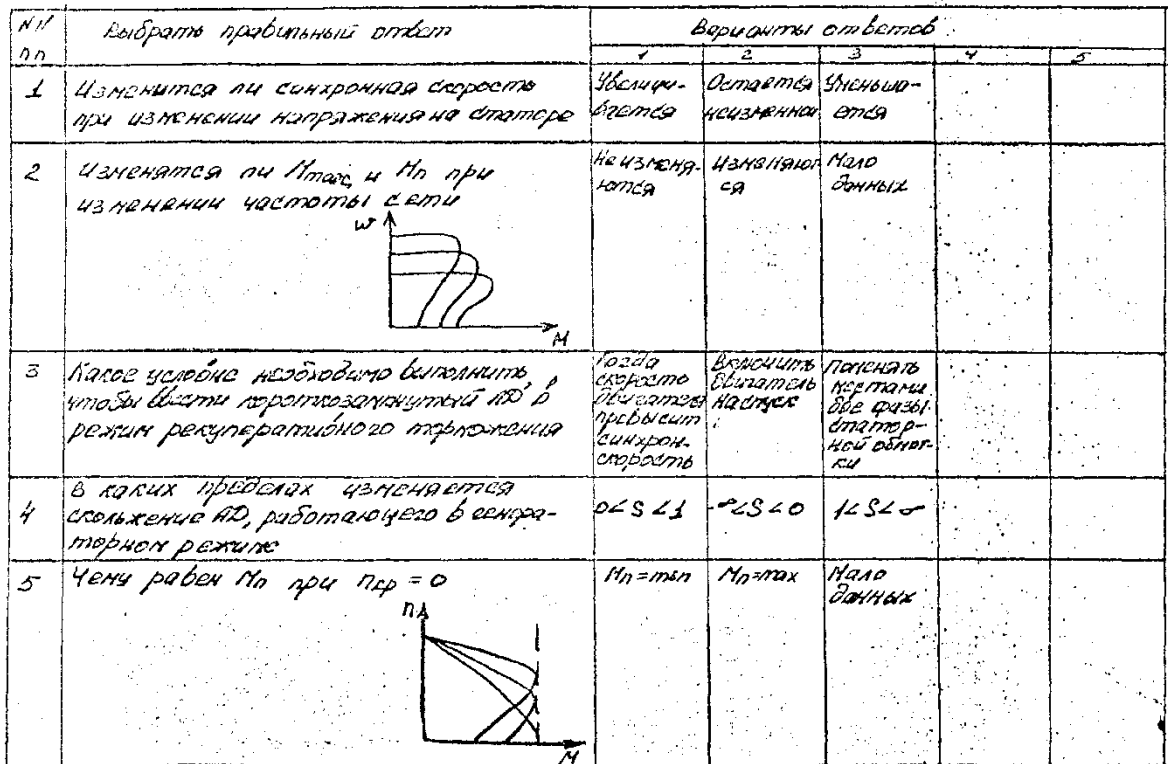 NN Выбрать правильный ответ Варианты ответов
пп 1 2 3 4 5
1 Изменится ли синхронная скорость
при изменении напряжения на статоре
Увеличи-
вается
Остается
неизменной
Уменьша-
ется
2 Изменятся ли Mmax и Mп при
изменении частоты сети
ω
M
Не изменя-
ются
Изменяют
ся
Мало
данных
3 Какое условие необходимо выполнить,
чтобы ввести короткозамкнутый АД в
режим рекуперативного торможения
Когда
скорость
двигателя
превысит
синхрон.
скорость
Включить
двигатель
на спуск
Поменять
местами
две фазы
статор-
ной обмот-
ки
4 В каких пределах изменяется
скольжение АД, работающего в генера-
торном режиме
0<S<1
-∞<S<0
1<S<∞
5 Чему равен Mп при nкр = 0
n
M
Mп=min
Mп=max
Мало
данных